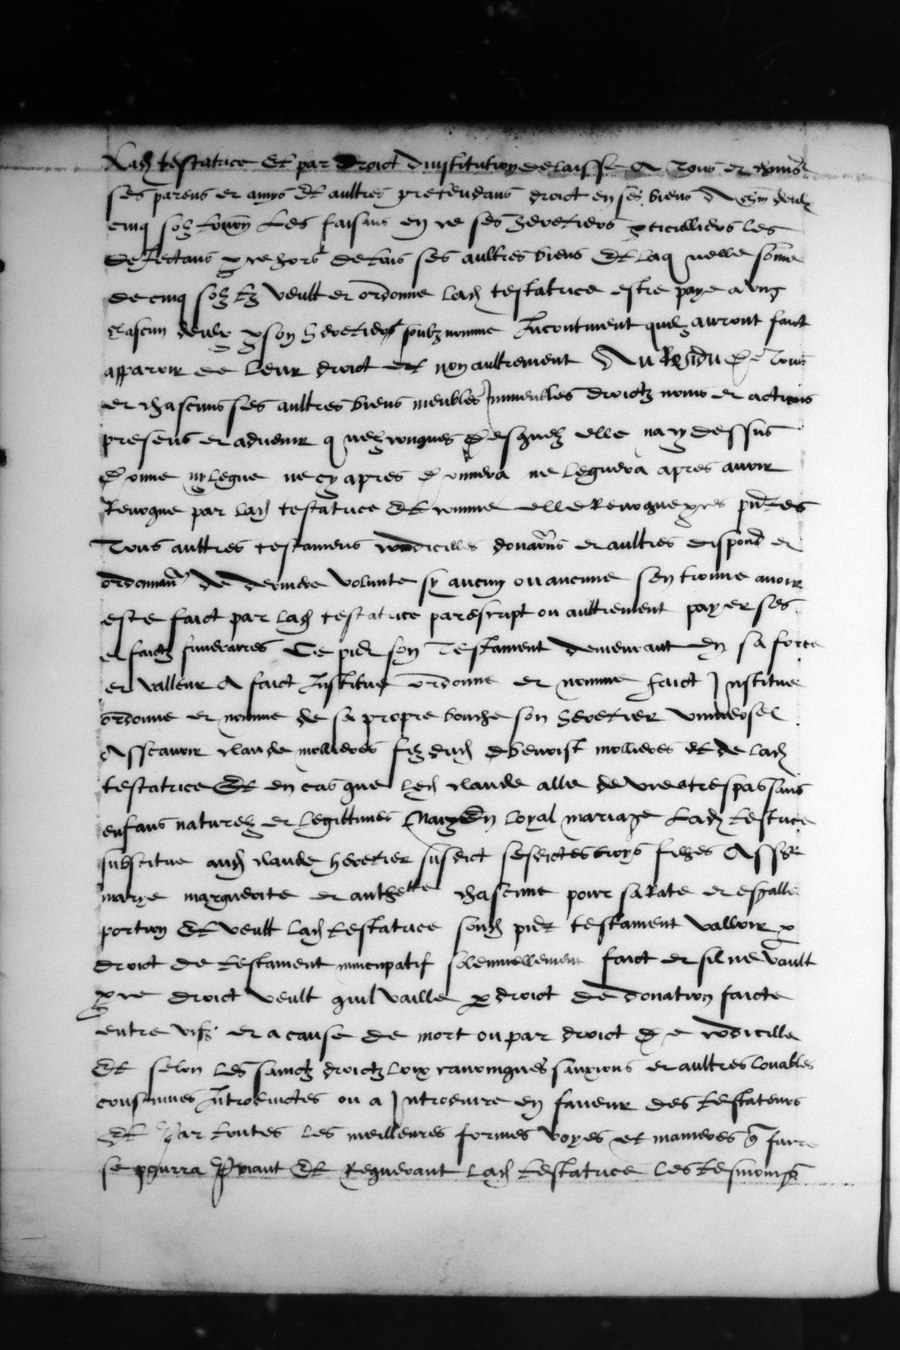 Lad testatrice Et par droict dinstitution delaisse A Tous et chascuns
ses parens et amys Et aultres pretendans droict en ses biens A chascun deulx
cinq solz Les faisans en ce ses heretiers particulliers Les
deiectans par ce hors de tous ses aultres biens Et laquelle somme
de cinq solz tz veult et ordonne lad testatrice estre paye a ung
chascun deulx par son heretier soubz nomme Incontinent quilz auront faict
apparoir de leur droict et non aultrement Au Residu de Tous
et chascuns ses aultres biens meubles immeubles droictz noms et actions
presens et advenir quelzconques desquelz elle na cy dessus
donne ny legue ne cy apres donnera ne leguera apres avoir
Revoque par lad testatrice Et comme elle Revoque par ces pntes
Tous aultres testamens codicilles donations et aultres disposons et
ordonnan de derniere volunte sy aucun ou aucune sen trouve avoir
este faict par lad testatrice par escript ou aultrement payer ses
et faictz funeraires Ce pnt son Testament demeurant En sa force
et valleur A faict Institue ordonne et nomme faict Institue
ordonne et nomme de sa propre bouche son heretier universel
Asscavoir claude mollieres filz dud benoist mollieres et de lad
testatrice Et en cas que led claude alla de vie a trespas sans
enfans naturelz et legittimes Nayz En loyal mariage Lad testrice
substitue aud claude heretier susdict sesdictes troys filhes Asscr
marye marguerite et anthette chascune pour sa Rate et esgalle
portion Et veult lad testatrice sond pnt testament valloir par
droict de testament nuncupatif solennellement faict et sil ne vault
par ce droict veult quil vaille par droict de donation faicte
entre vifz et a cause de mort ou par droict de codicille
Et selon les sainctz droictz loix canonicques sanxions et aultres louables
coustumes Introduictes ou a Introduire en faveur des testateurs
Et par toutes les meilleures formes voyes et manieres que faire
se pourra Priant Et Requerant Lad testatrice Les tesmoingz